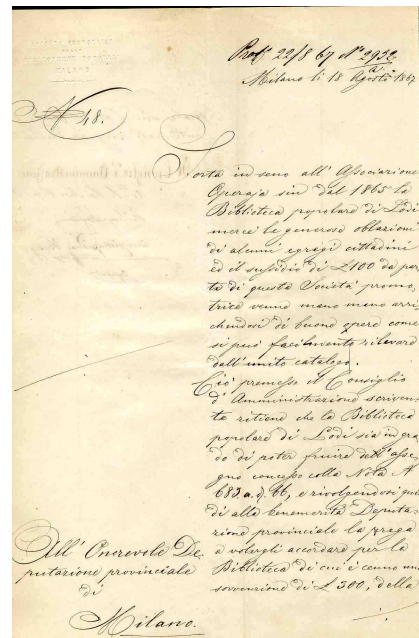 Prot. 22/8 67 N° 2932
Milano li 18 Agosto 1867
N 48.
Sorta in seno all' Associazione
Operaja sin dal 1865 la
Biblioteca popolare di Lodi
mercè le generose oblazioni
di alcuni egregi cittadini
ed il sussidio di £100 da par
te di questa Società promo,
trice venne mano mano arric
chendosi di buone opere come
si può facilmente rilevare
dall' unito catalogo.
Ciò premesso il Consiglio
d' Amministrazione scriven
te ritiene che la Biblioteca
popolare di Lodi sia in gra
do di poter fruire dell' asse
gno concesso colla Nota N
683 a. d. 66, e rivolgendosi quin
di alla benemerita Deputa
zione provinciale la prega
a volergli accordare per la
Biblioteca di cui è cenno una
sovvenzione di £ 300, della
All' Onorevole De
putazione provinciale
di
Milano.